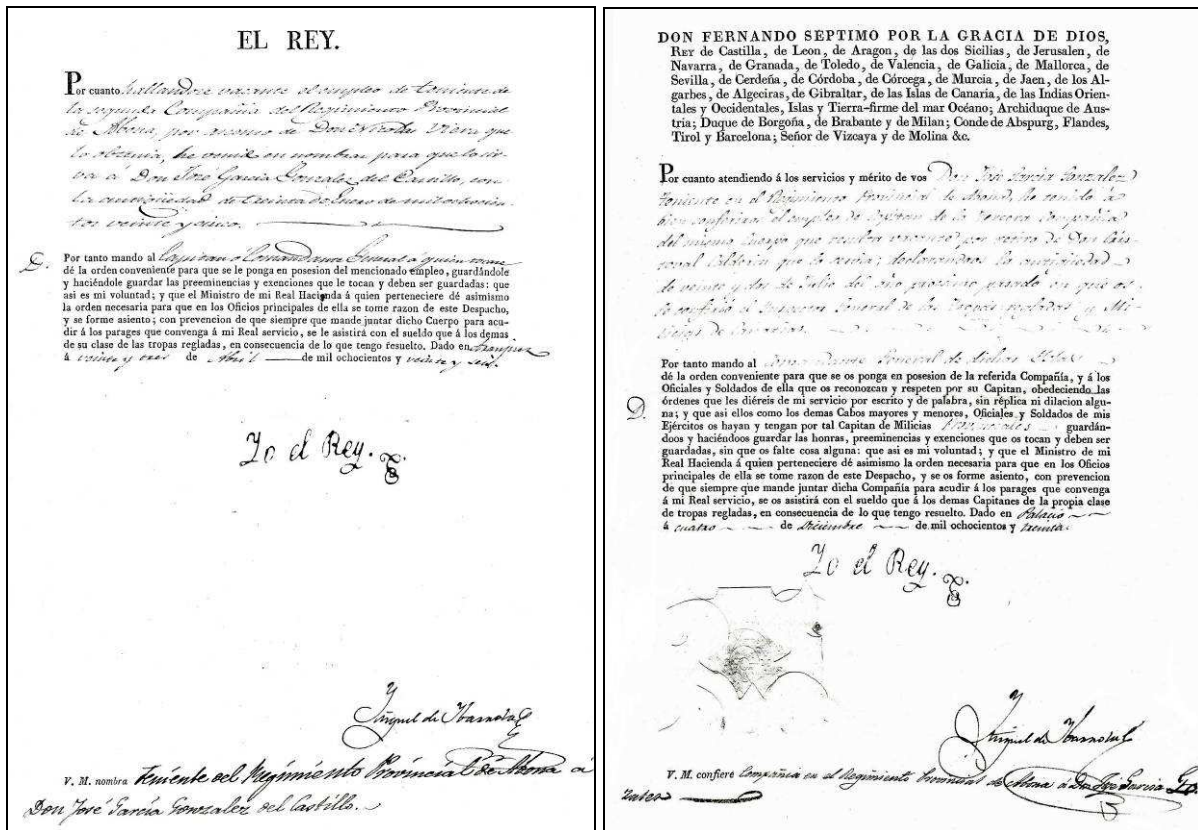 EL REY.
Por cuanto hallandose vacante el empleo de teniente de
la segunda Compañia del Regimiento Provincial
de Abona, por ascenso de Don Nicolas Viera que
lo obtenia, he venido en nombrar para que lo sir-
va á Don José Garcia Gonzalez del Castillo, con
la antigüedad de treinta de Enero de mil ochocien-
tos veinte y cinco.
D. Por tanto mando al Capitan ó Comandante General a quien tocare
dé la orden conveniente para que se le ponga en posesion del mencionado empleo, guardándole
y haciéndole guardar las preeminencias y exenciones que le tocan y deben ser guardadas: que
asi es mi voluntad; y que el Ministro de mi Real Hacienda á quien perteneciere dé asimismo
la orden necesaria para que en los Oficios principales de ella se tome razon de este Despacho,
y se forme asiento; con prevencion de que siempre que mande juntar dicho Cuerpo para acu-
dir á los parages que convenga á mi Real servicio, se le asistirá con el sueldo que á los demas
de su clase de las tropas regladas, en consecuencia de lo que tengo resuelto. Dado en Aranjuez
á veinte y tres de Abril de mil ochocientos y veinte y seis.
Yo el Rey.
Miguel de Ibarrola
V. M. nombra teniente del Regimiento Provincial de Abona á
Don José García Gonzalez del Castillo.
DON FERNANDO SEPTIMO POR LA GRACIA DE DIOS,
REY de Castilla, de Leon, de Aragon, de las dos Sicilias, de Jerusalen, de
Navarra, de Granada, de Toledo, de Valencia, de Galicia, de Mallorca, de
Sevilla, de Cerdeña, de Córdoba, de Córcega, de Murcia, de Jaen, de los Al-
garbes, de Algeciras, de Gibraltar, de las Islas de Canaria, de las Indias Orien-
tales y Occidentales, Islas y Tierra-firme del mar Océano; Archiduque de Aus-
tria; Duque de Borgoña, de Brabante y de Milan; Conde de Abspurg, Flandes,
Tirol y Barcelona; Señor de Vizcaya y de Molina &c.
Por cuanto atendiendo á los servicios y mérito de vos Don José Garcia Gonzalez
teniente en el Regimiento Provincial de Abona, he venido á
bien conferiros el empleo de Capitan de la tercera Compañia
del mismo Cuerpo que resulta vacante por retiro de Don Cris-
toval Calderin que la servia; declarandoos la antigüedad
de veinte y dos de Julio del año proximo pasado en que os
lo confirió el Inspector General de las Tropas regladas y Mi-
licias de Canarias.
Por tanto mando al Comandante General de dichas Islas
dé la orden conveniente para que se os ponga en posesion de la referida Compañía, y á los
Oficiales y Soldados de ella que os reconozcan y respeten por su Capitan, obedeciendo las
órdenes que les diéreis de mi servicio por escrito y de palabra, sin réplica ni dilacion algu-
D. na; y que asi ellos como los demas Cabos mayores y menores, Oficiales y Soldados de mis
Ejércitos os hayan y tengan por tal Capitan de Milicias Provinciales guardán-
doos y haciéndoos guardar las honras, preeminencias y exenciones que os tocan y deben ser
guardadas, sin que os falte cosa alguna: que asi es mi voluntad; y que el Ministro de mi
Real Hacienda á quien perteneciere dé asimismo la orden necesaria para que en los Oficios
principales de ella se tome razon de este Despacho, y se os forme asiento, con prevencion
de que siempre que mande juntar dicha Compañía para acudir á los parages que convenga
á mi Real servicio, se os asistirá con el sueldo que á los demas Capitanes de la propia clase
de tropas regladas, en consecuencia de lo que tengo resuelto. Dado en Palacio
á cuatro de Diciembre de mil ochocientos y treinta.
Yo el Rey.
Miguel de Ibarrola
V. M. confiere Compañia en el Regimiento Provincial de Abona á Don José Garcia Gon
zalez